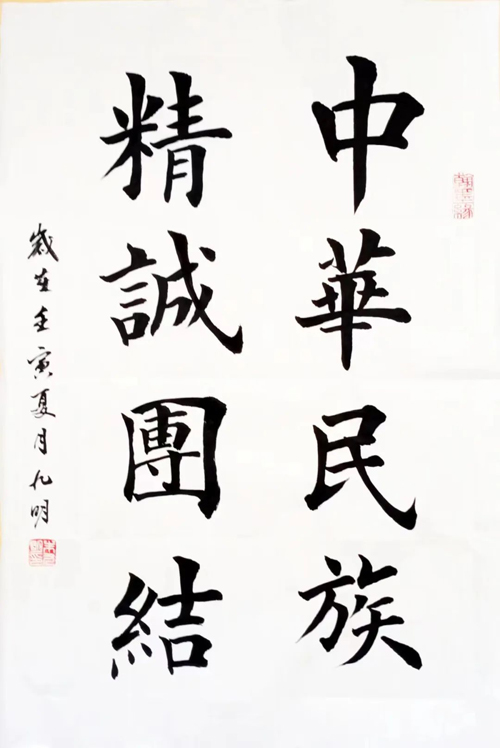 中華民族
精誠團結
歲在壬寅夏月九明